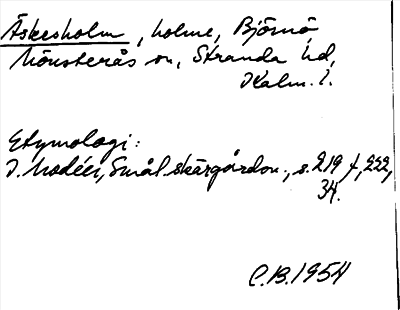 Äskesholm, holme, Björnö
Mönsterås sn, Stranda hd,
Kalm. l.
Etymologi:
I. Modéer, Smål. skärgårdsn., s. 219 f, 222,
34.
C.B. 1954